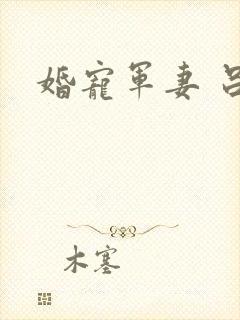 婚寵軍妻
木塞